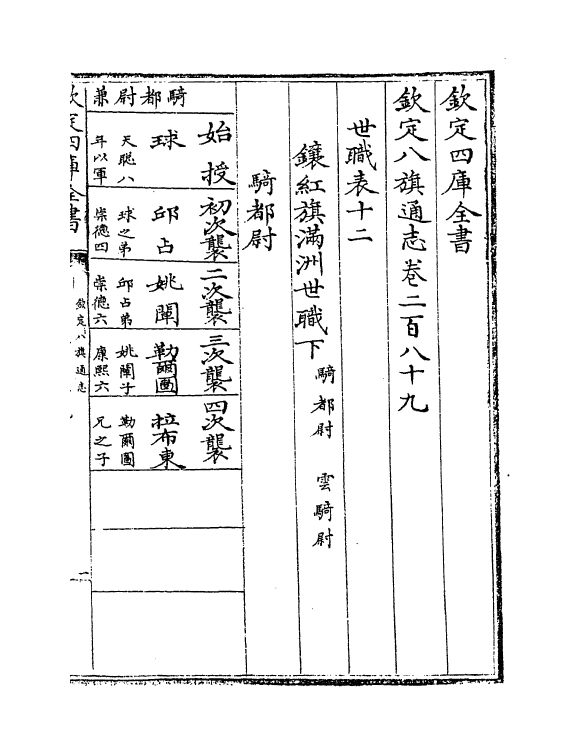 欽定四庫全書
欽定八旗通志卷二百八十九
世職表十二
鑲紅旗滿洲世職下 騎都尉 雲騎尉
騎都尉
騎都尉兼
始授
球
天聰八
年以軍
初次襲
邱占
球之弟
崇德四
二次襲
姚闡
邱占弟
崇德六
三次襲
勒爾圖
姚闡子
康熙六
四次襲
拉布東
勒爾圖
兄之子
欽定四庫全書
欽定八旗通志
一